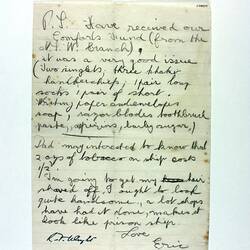 P.S. Have received our
Comforts Fund (from the
N.W. branch),
it was a very good issue
(Two singlets, three khaki
handkerchiefs, 1 pair long
socks 1 pair of short.
Writing paper and envelopes
soap, razor blades toothbrush
paste, aspirins, barley sugar)
Dad may interested to know that
2 ozs of tobacco on ship costs
1/2.
I'm going to get my hair
shaved off, I ought to look
quite handsome, a lot chaps
have had it done, makes it
look like prison ship.
Love
Eric